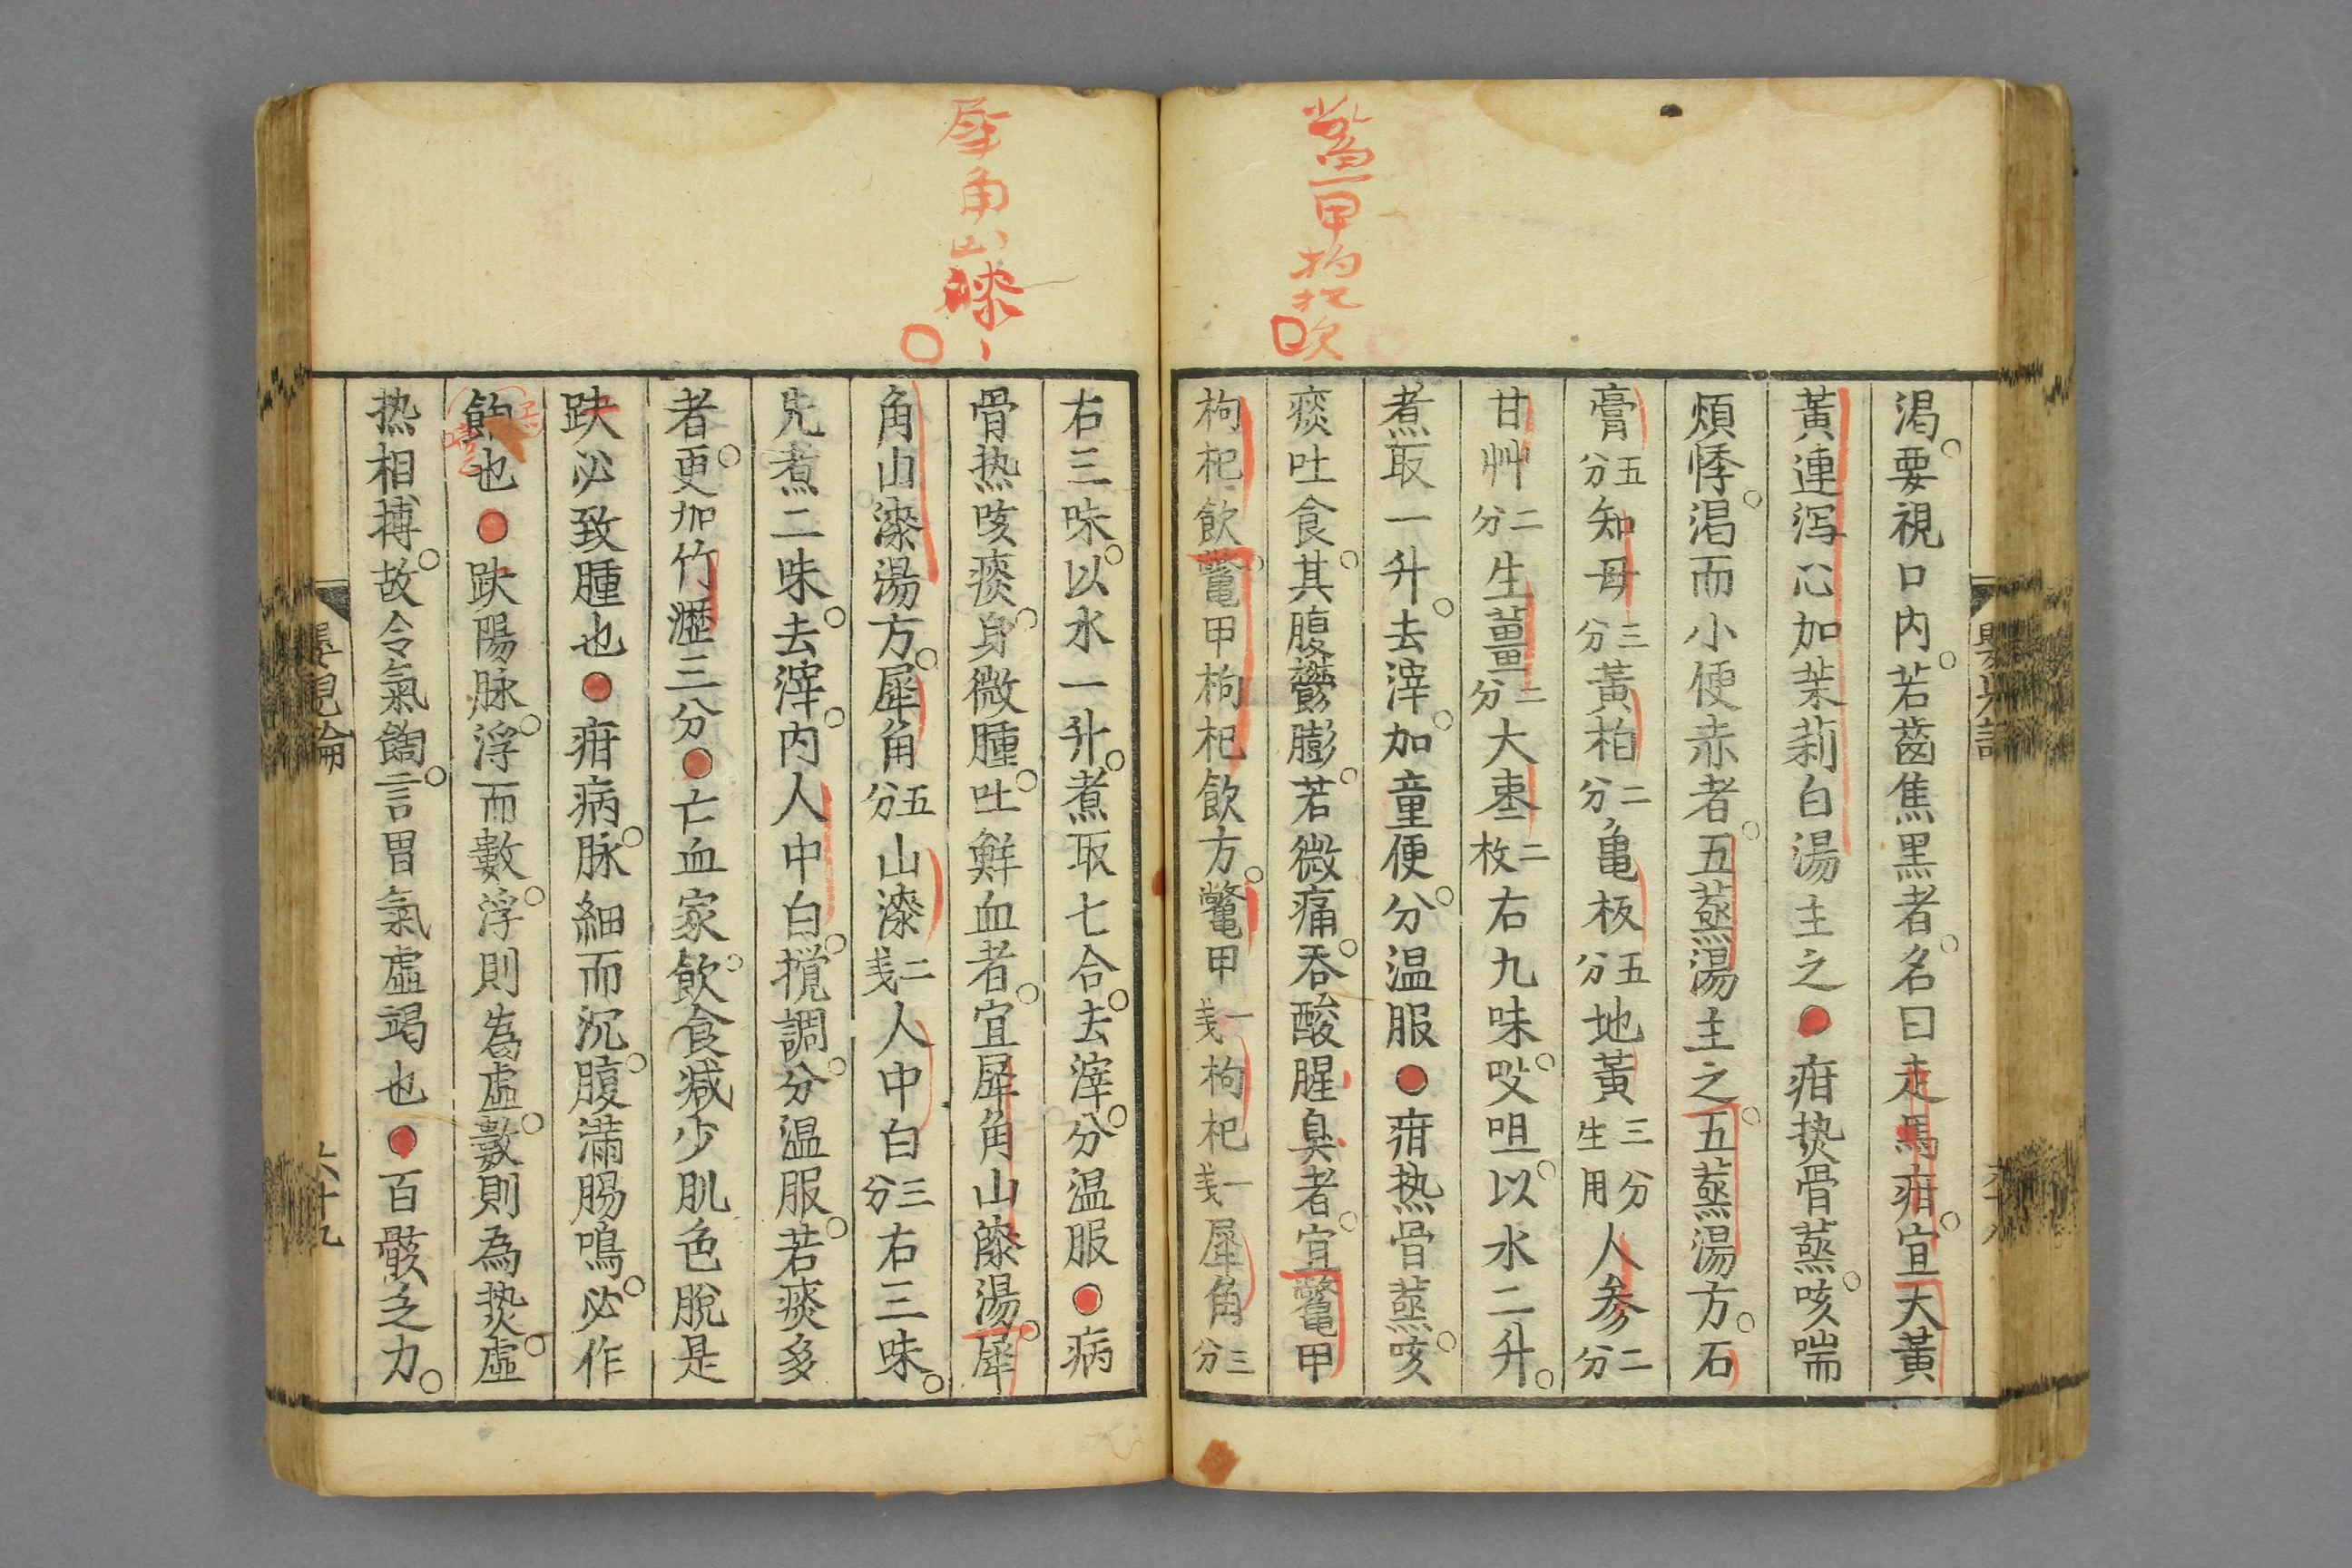 鱉甲枸杞飲
渴要視口內若齒焦黑者名曰走馬疳宜大黃
黃連泻心加茉莉白湯主之疳热骨蒸咳喘
煩悸渴而小便赤者五蒸湯主之五蒸湯方石
膏五分知母三分黃柏二分龜板五分地黃三分生用人参二分
甘艸二分生薑二分大棗二枚右九味㕮咀以水二升
煮取一升去滓加童便分温服疳热骨蒸咳
痰吐食其腹鬱膨若微痛吞酸腥臭者宜鼈甲
枸杞飲鼈甲枸杞飲方鼈甲一戋枸杞一戋犀角三分
犀角山漆
右三味以水一升煮取七合去滓分温服病
骨热咳痰身微腫吐鮮血者宜犀角山漆湯犀
角山漆湯方犀角五分山漆二戋人中白三分右三味
先煮二味去滓內人中白攪調分温服若痰多
者更加竹瀝三分亡血家飲食减少肌色脫是
趺必致腫也疳病脉細而沉腹滿腸鳴必作
也趺陽脉浮而數浮則為虛數則為热虛
热相搏故令氣餲言胃氣虛竭也百骸乏力
六十九